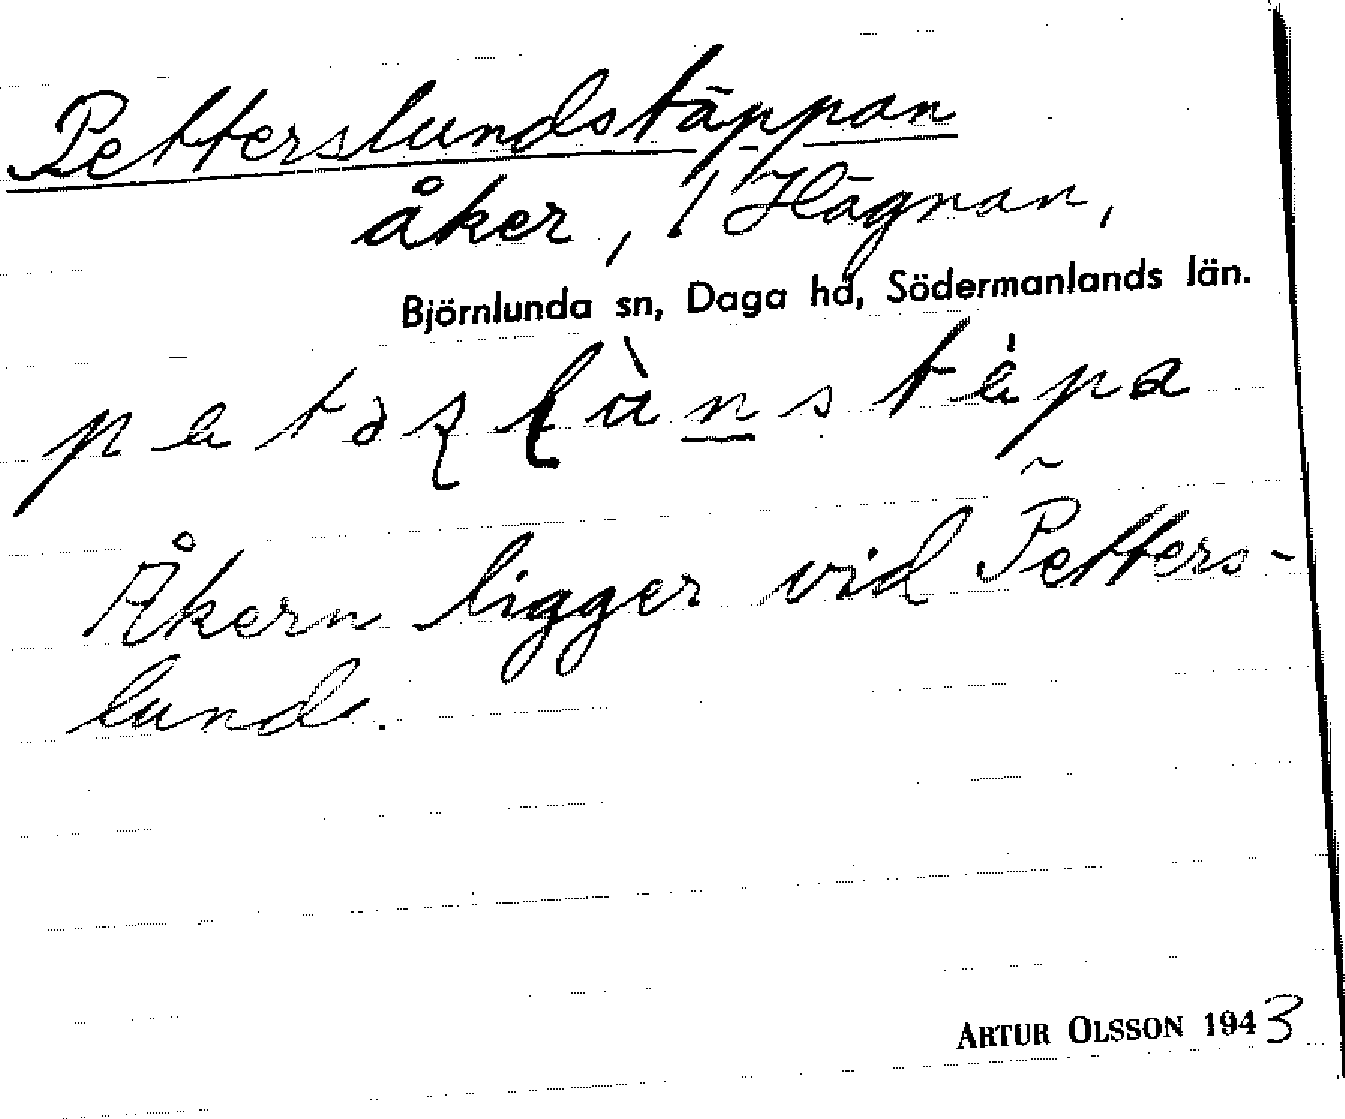 Petterslundstäppan
åker, 1 Hägnan,
Björnlunda sn, Daga hd, Södermanlands län.
Åkern ligger vid Petters-
lund.
ARTUR OLSSON 1943